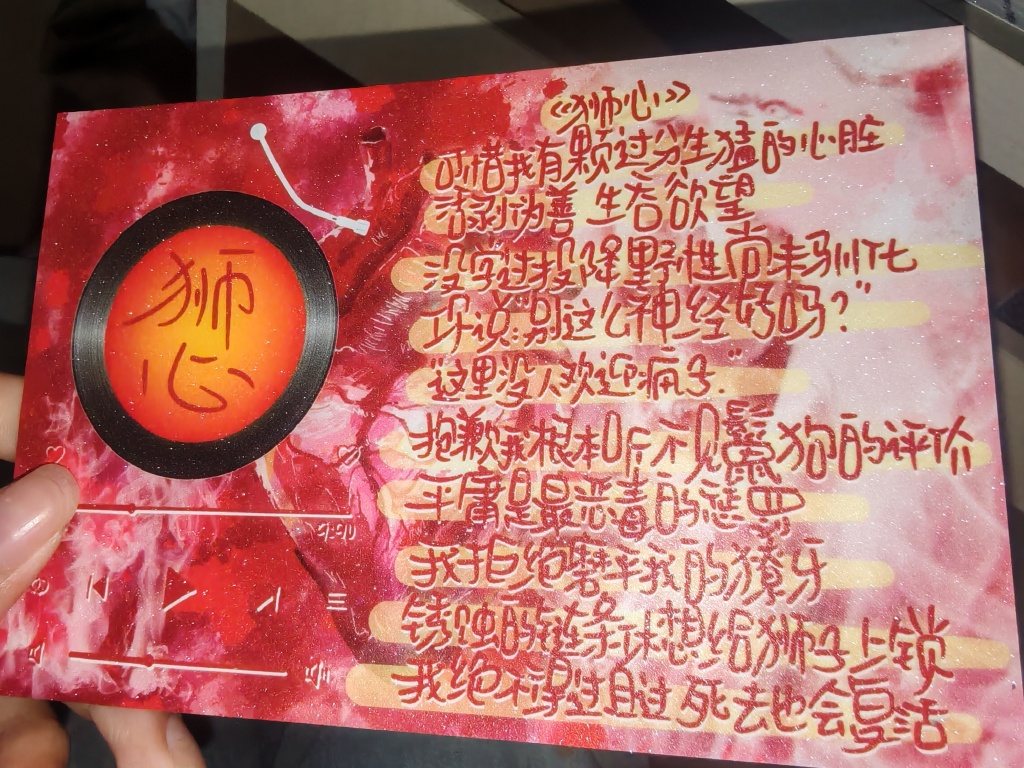 狮心
《狮心》
可惜我有颗过分生猛的心脏
活剥伪善 生吞欲望
没学过投降 野性尚未驯化
你说:"别这么神经好吗?"
"这里没人欢迎疯子."
抱歉我根本听不见鬣狗的评价
平庸是最恶毒的谜
我拒绝磨平我的獠牙
锈蚀的链条休想给狮子上锁
我绝不得过且过 死去也会复活